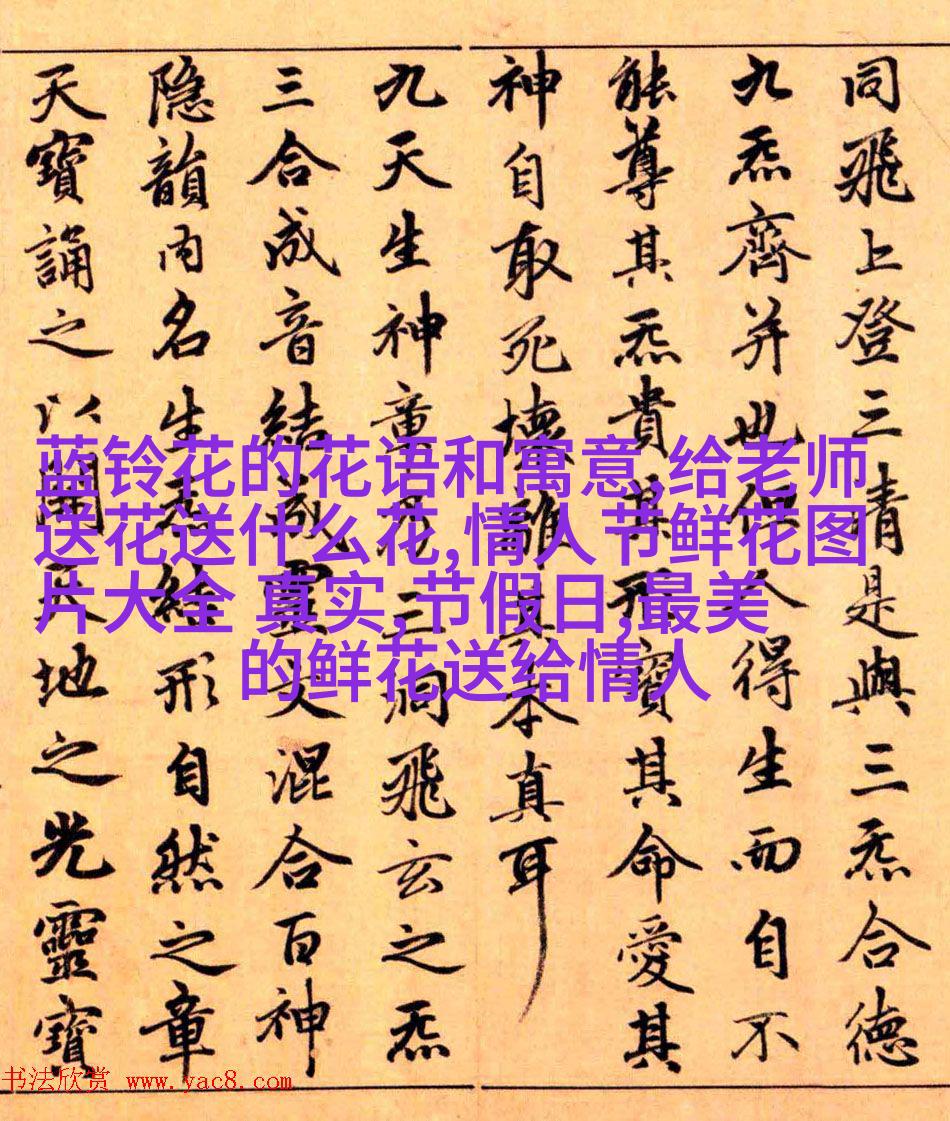 同飛上登三清是與三炁合德
九炁齊并也但人得生而自不
能尊其炁貴其形寶其命愛其
神自取死壞離其本真耳
九天生神章乃三洞飛玄之炁
三合成音結成靈文混合百神
隐韻内名生炁結形自然之章
天寶誦之以開天地之光靈寶
蓝铃花的花语和寓意,给老师
送花送什么花,情人节鲜花图
片大全 真实,节假日,最美
的鲜花送给情人
书法欣赏 www.yac8.com